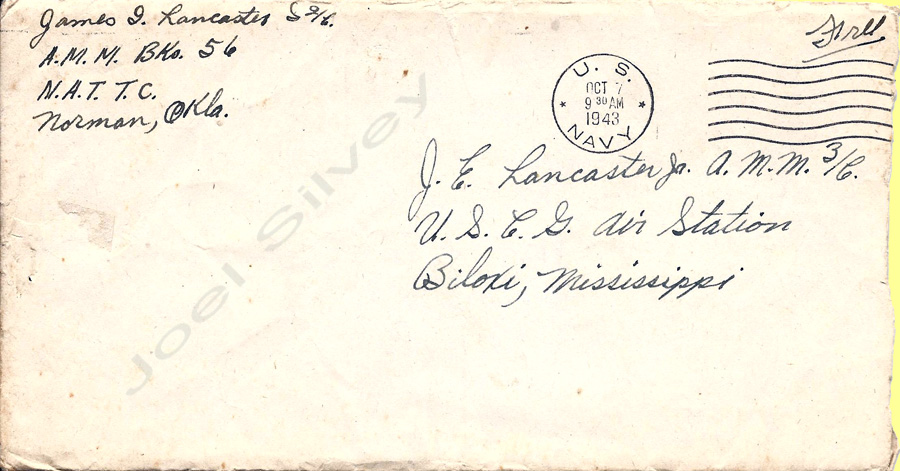 James I. Lancaster S 2/c.
A.M.M. Bks. 56
N.A.T.T.C.
Norman, Okla.
Free
U. S.
OCT 7
9 30 AM
1943
NAVY
J. E. Lancaster Jr. A.M.M. 3/C.
U. S. C. G. Air Station
Biloxi, Mississippi
Joel Silvey